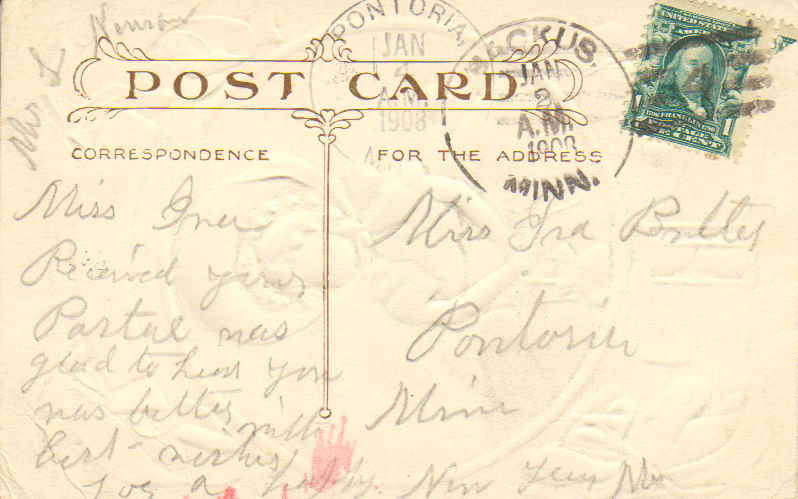 PONTORIA,
JAN
2
A.M.
1908
BACKUS.
JAN
2
A.M.
1908
MINN.
UNITED STATES
1 CENT
POST CARD
CORRESPONDENCE
FOR THE ADDRESS
Miss
Received yours
Postal was
glad to hear you
was better with
best wishes
for a happy New Year
Miss Ira
Pontoria
Minn